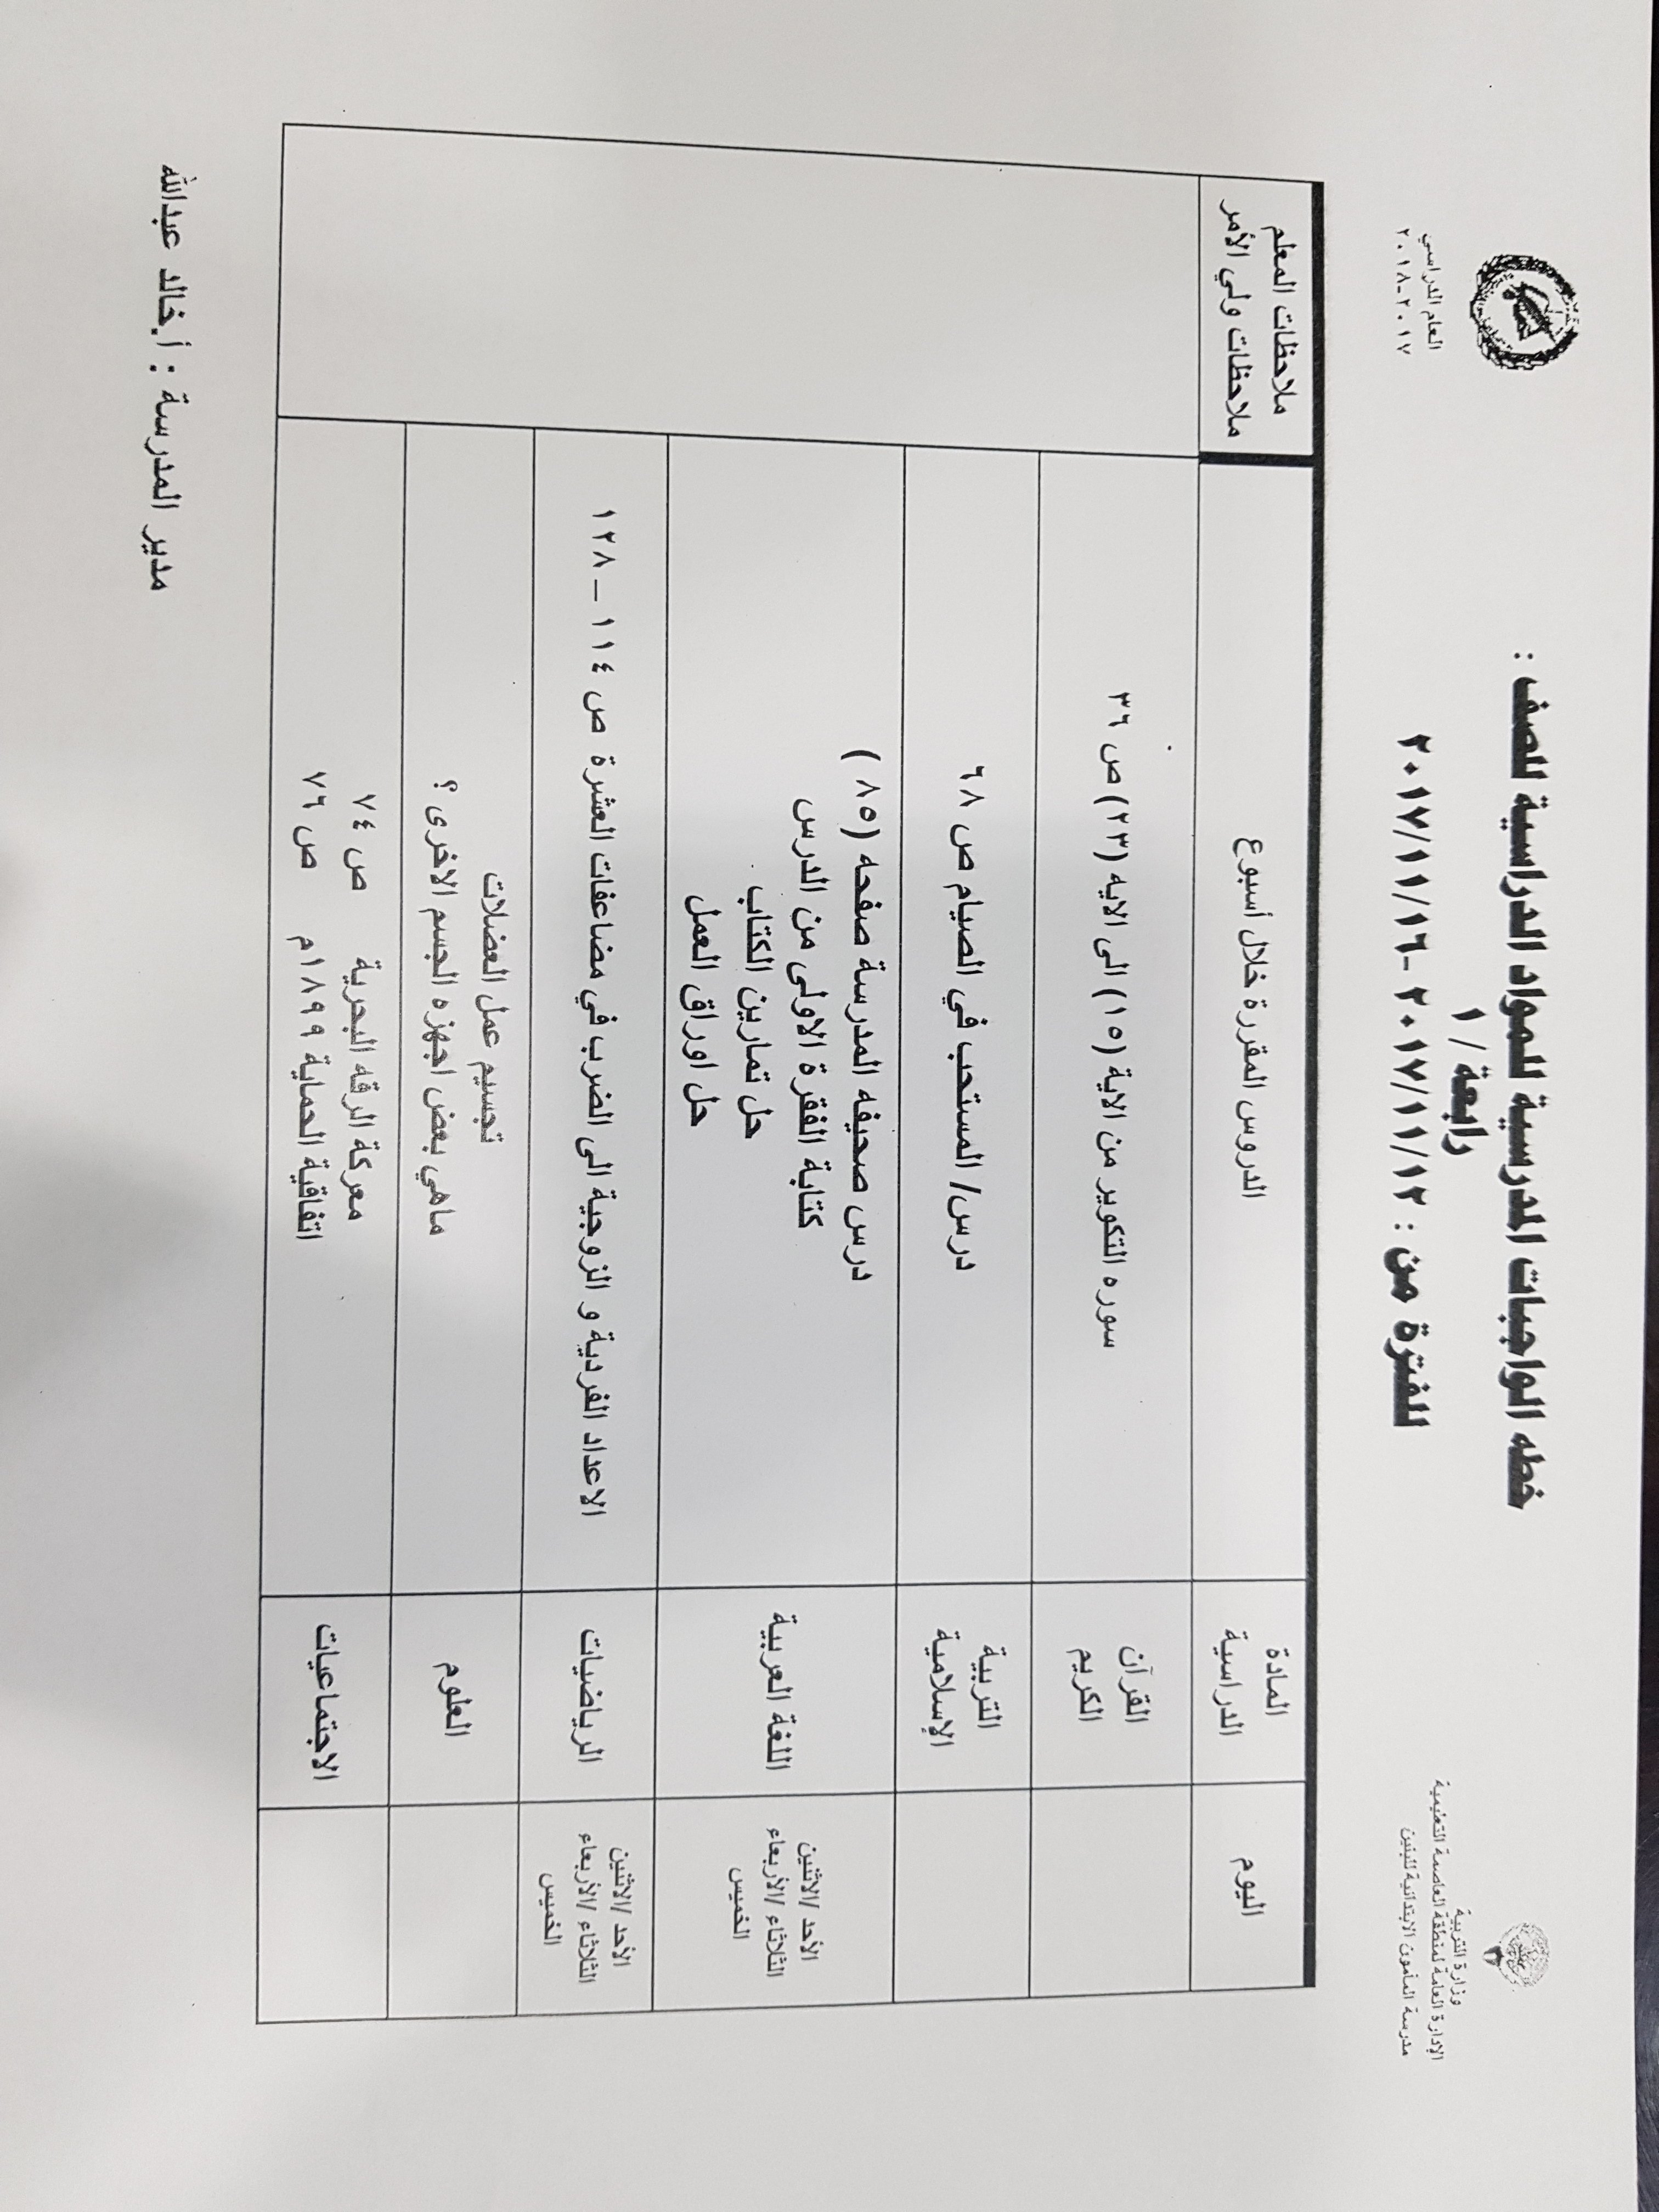 وزارة التربية
الإدارة العامة لمنطقة العاصمة التعليمية
مدرسة المأمون الابتدائية للبنين
خطه الواجبات المدرسية للمواد الدراسية للصف :
رابعة / ١
للفترة من : ٢٠١٧/١١/١٢ -٢٠١٧/١١/١٦
العام الدراسي
٢٠١٧-٢٠١٨
اليوم
المادة
الدراسية
الدروس المقررة خلال أسبوع
ملاحظات المعلم
ملاحظات ولي الأمر
القرآن
الكريم
سوره التكوير من الاية (١٥) الى الايه (٢٣) ص ٣٦
التربية
الإسلامية
درس/ المستحب في الصيام ص ٦٨
الأحد /الاثنين
الثلاثاء /الأربعاء
الخميس
اللغة العربية
درس صحيفه المدرسة صفحه (٨٥ )
كتابة الفقرة الاولى من الدرس
حل تمارين الكتاب
حل اوراق العمل
الأحد /الاثنين
الثلاثاء /الأربعاء
الخميس
الرياضيات
الاعداد الفردية و الزوجية الى الضرب في مضاعفات العشرة ص ١١٤ – ١٢٨
العلوم
تجسيم عمل العضلات
ماهي بعض اجهزه الجسم الاخرى ؟
الاجتماعيات
معركة الرقه البحرية ص ٧٤
اتفاقية الحماية ١٨٩٩م ص ٧٦
مدير المدرسة : أ.خالد عبدالله